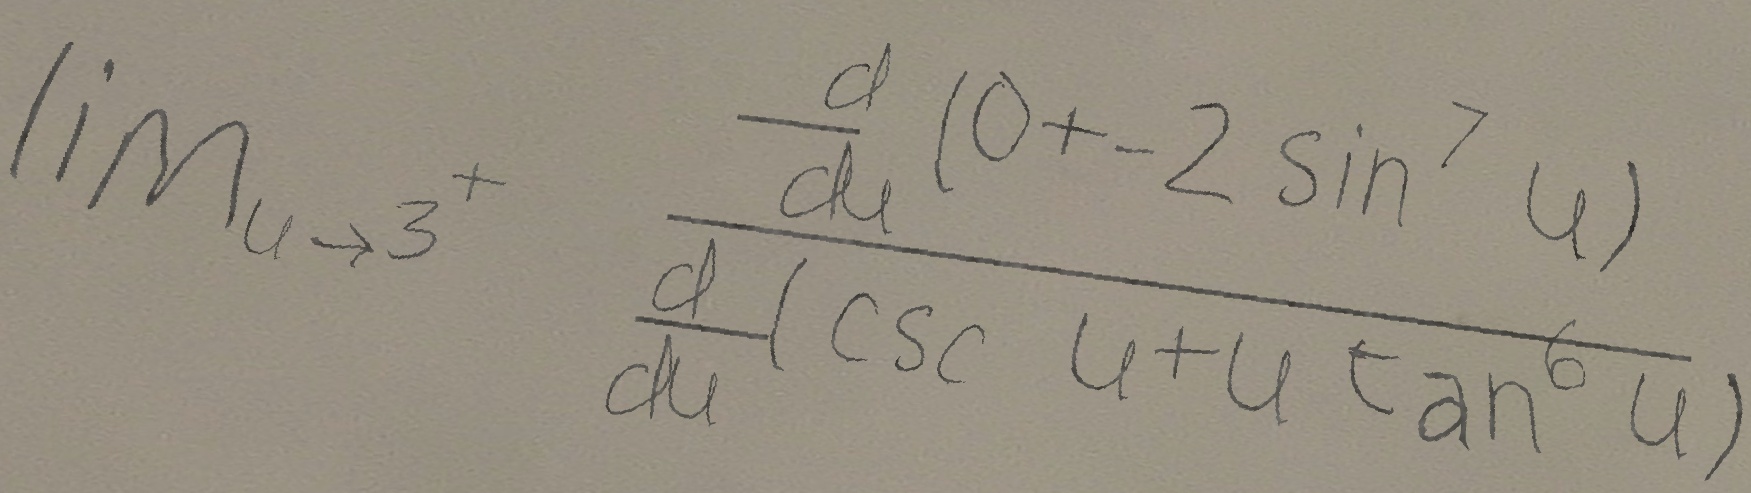 lim_{u→3^+} \frac{\frac{d}{du}(0+-2 sin^7 u)}{\frac{d}{du}(csc u+u tan^6 u)}